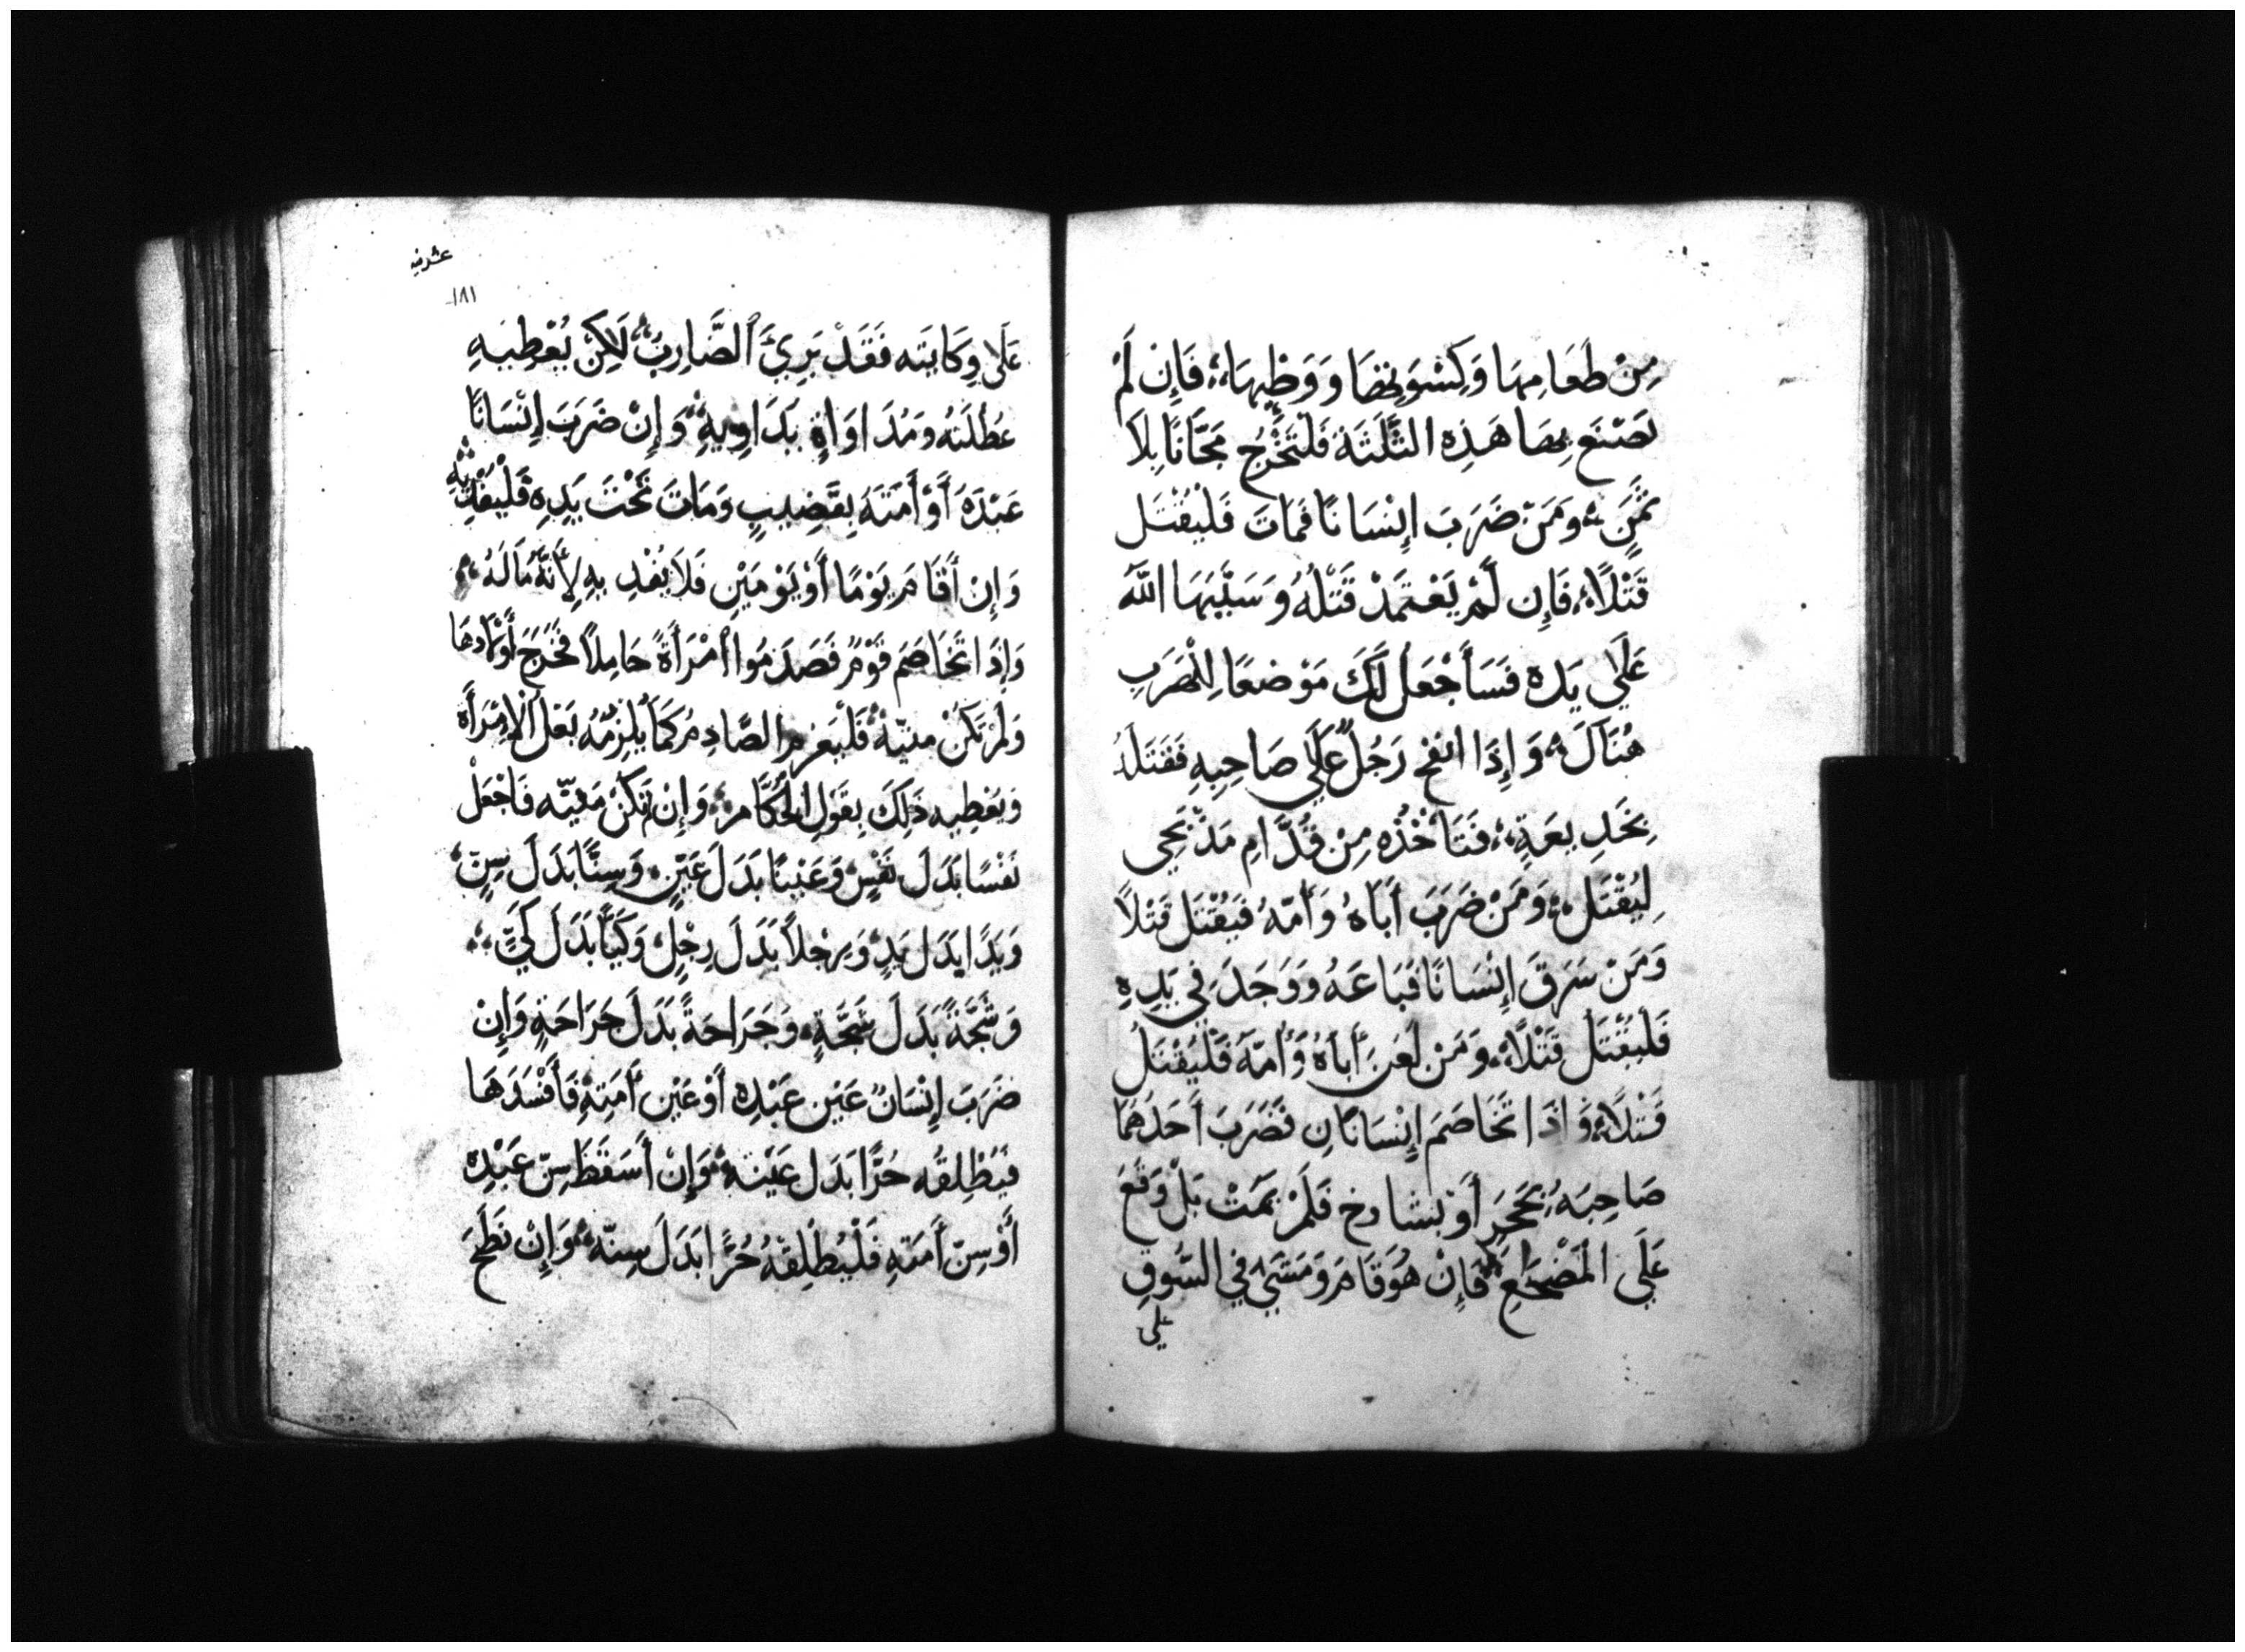 مِنْ طَعَامِهَا وَكِسْوَتِهَا وَوَطْيِهَا فَإِن لَمْ
تصْنَع بِهَا هَذِهِ الثَّلَثَة فَلْتَخْرُج مَجَّانًا بِلَا
ثَمَنٍ وَمَنْ ضَرَبَ إِنْسَانًا فَمَاتَ فَلْيُقْتَل
قَتْلًا فَإِن لَمْ يَعْتَمَدْ قَتْلُهُ وَسَبَّبَهَا اللّٰه
عَلَي يَدِه فَسَأَجْعَلُ لَكَ مَوْضعًا لِلْهَرَبِ
هُنَاكَ وَإِذَا اتقح رَجُلٌ عَلَي صَاحِبِهِ فَقَتَلَهُ
بِخَدِيعَةٍ فَتَأْخُذْه مِنْ قُدَّامِ مَذْبَحِي
لِيُقْتَل وَمَنْ ضَرَبَ أَبَاهُ وَأُمّهُ فَيُقْتَل قَتْلًا
وَمَنْ سَرَقَ إِنْسَانًا فَبَاعَهُ وَوَجَدَ فِي يَدِهِ
فَلْيُقْتَل قَتْلًا وَمَنْ لَعَنَ أَبَاهُ وَأُمّهُ فَلْيُقْتَل
قَتْلًا وَإِذَا تَخَاصَمَ إِنْسَانَانِ فَضَرَبَ أَحَدُهُمَا
صَاحِبَهُ بِحَجَرٍ أَوْ بشادخ فَلَمْ يَمُتْ بَلْ وَقَعَ
عَلَي المَضْجَعِ فَإِنْ هُوَ قَامَ وَمَشَي فِي السُّوقِ
علي
عشرنيه
١٨١
عَلَى وِكَايَتِه فَقَدْ بَرِئَ الضَّارِبُ لَكِنْ يُعْطِيهِ
عُطْلَتَهُ وَمُدَاوَاةٍ يَدَاوِيهِ وَإِنْ ضَرَبَ إِنْسَانًا
عَبْدَهُ أَوْ أَمَتَهُ بِقَضِيبٍ وَمَاتَ تَحْتَ يَدِهِ فَلْيُقْدِ بِهِ
وَإِنْ أَقَامَ يَوْمًا أَوْ يَوْمَيْنِ فَلَا يُقْدِ بِهِ لِأَنَّهُ مَالَهُ
وَإِذَا تَخَاصَمَ قَوْمٌ فَصَدَمُوا امْرَأَةً حَامِلًا فَخَرَجَ أَوْلَادهَا
وَلَمْ تَكُنْ مَنيّةٌ فَلْيَغرِم الصَّادِمُ كَمَا يُلْزِمُهُ بَعْل الْإِمْرَأَة
وَيعْطِيه ذَلِكَ بِقَوْلِ الحُكَّامِ وَإِنْ تَكُنْ مَنيّه فَاجْعَلْ
نَفْسًا بَدَلَ نَفْسٍ وَعَيْنًا بَدَلَ عَيْنٍ وَسِنًّا بَدَلَ سِنٍّ
وَيَدًا بدَل يَدٍ وَرِجْلًا بَدَلَ رِجْلٍ وَكَيًّا بَدَلَ كَيٍّ
وَشَجَّةً بَدَلَ شَجَّةٍ وَجَرَاحَةً بَدَلَ جَرَاحَةٍ وَإِنْ
ضَرَبَ إِنْسَانٌ عَيْن عَبْدِهِ أَوْ عَيْن أَمَتِهِ فَأَفْسَدَهَا
فَيُطْلِقُه حُرًّا بَدَل عَيْنهِ وَإِنْ أَسْقَطَ سِنّ عَبْدِهِ
أَوْ سِنّ أَمَتِهِ فَلْيُطْلِقهُ حُرًّا بَدَلَ سِنّهِ وَإِنْ نَطَحَ